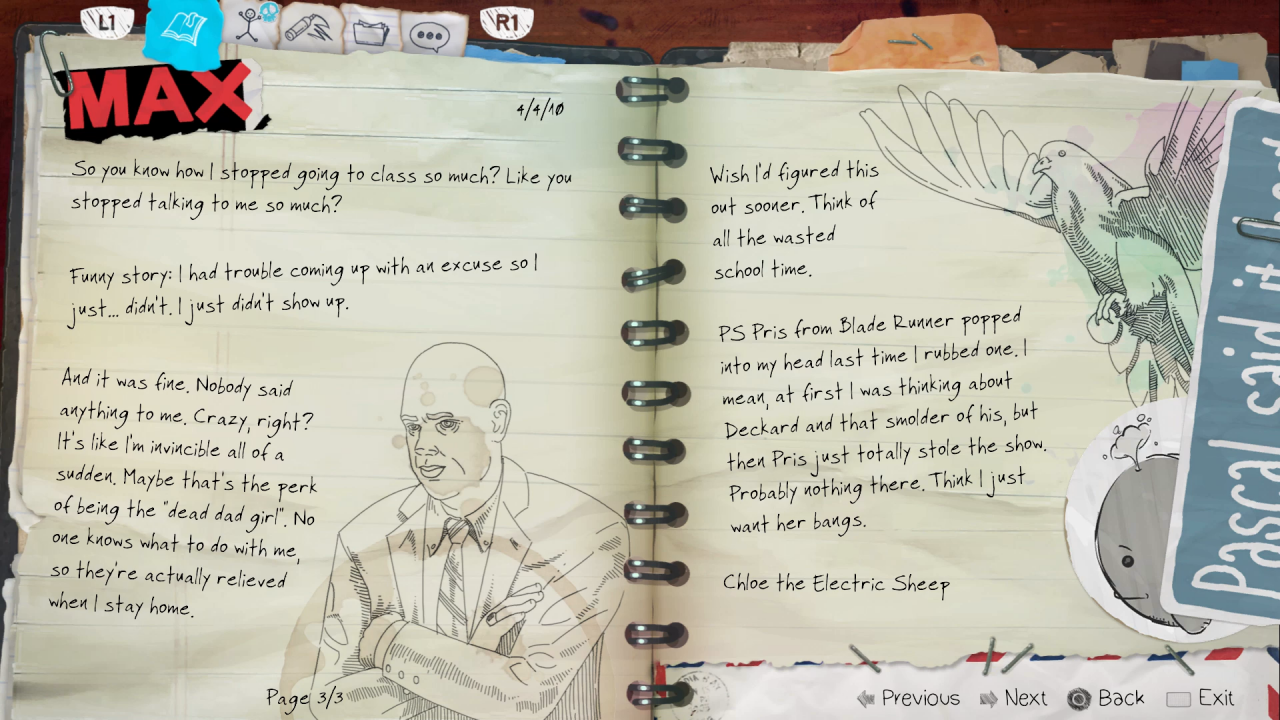 L1
R1
MAX
4/4/10
So you know how I stopped going to class so much? Like you
stopped talking to me so much?
Funny story: I had trouble coming up with an excuse so I
just... didn't. I just didn't show up.
And it was fine. Nobody said
anything to me. Crazy, right?
It's like I'm invincible all of a
sudden. Maybe that's the perk
of being the "dead dad girl". No
one knows what to do with me,
so they're actually relieved
when I stay home.
Page 3/3
Wish I'd figured this
out sooner. Think of
all the wasted
school time.
PS Pris from Blade Runner popped
into my head last time I rubbed one. I
mean, at first I was thinking about
Deckard and that smolder of his, but
then Pris just totally stole the show.
Probably nothing there. Think I just
want her bangs.
Chloe the Electric Sheep
Pascal said it
Previous
Next
Back
Exit